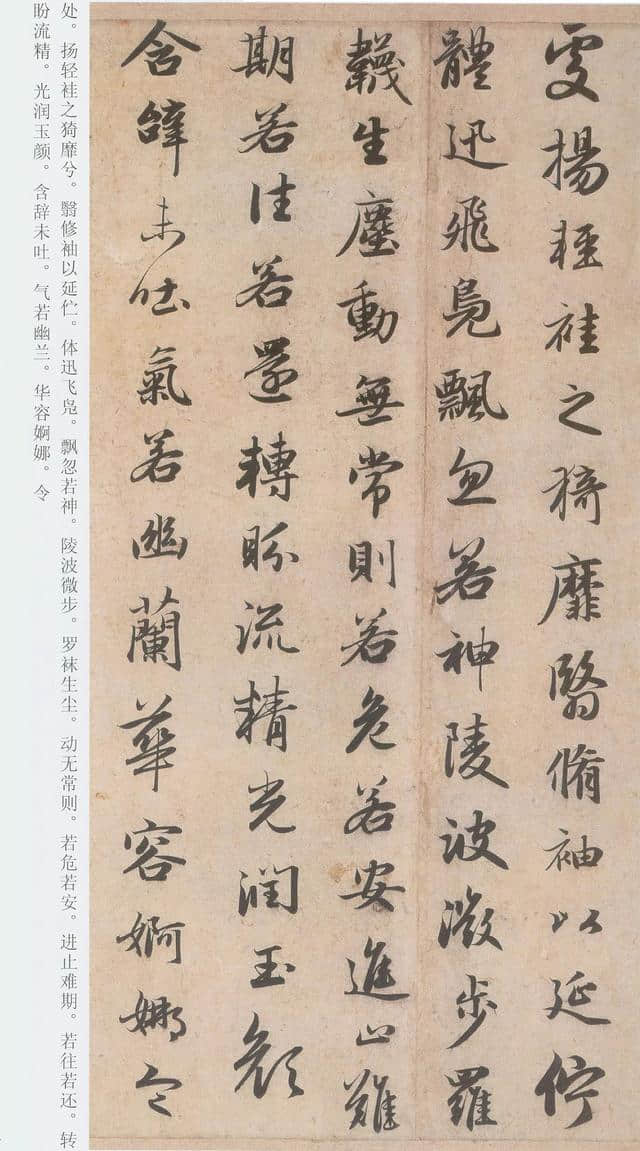 处。扬轻袿之猗靡兮。翳修袖以延伫。体迅飞凫。飘忽若神。陵波微步。罗袜生尘。动无常则。若危若安。进止难期。若往若还。转
盼流精。光润玉颜。含辞未吐。气若幽兰。华容婀娜。令
處揚輕袿之猗靡翳脩袖以延佇
體迅飛鳧飄忽若神陵波微步羅
韈生塵動無常則若危若安進止難
期若往若還轉盼流精光潤玉顏
含辭未吐氣若幽蘭華容婀娜令